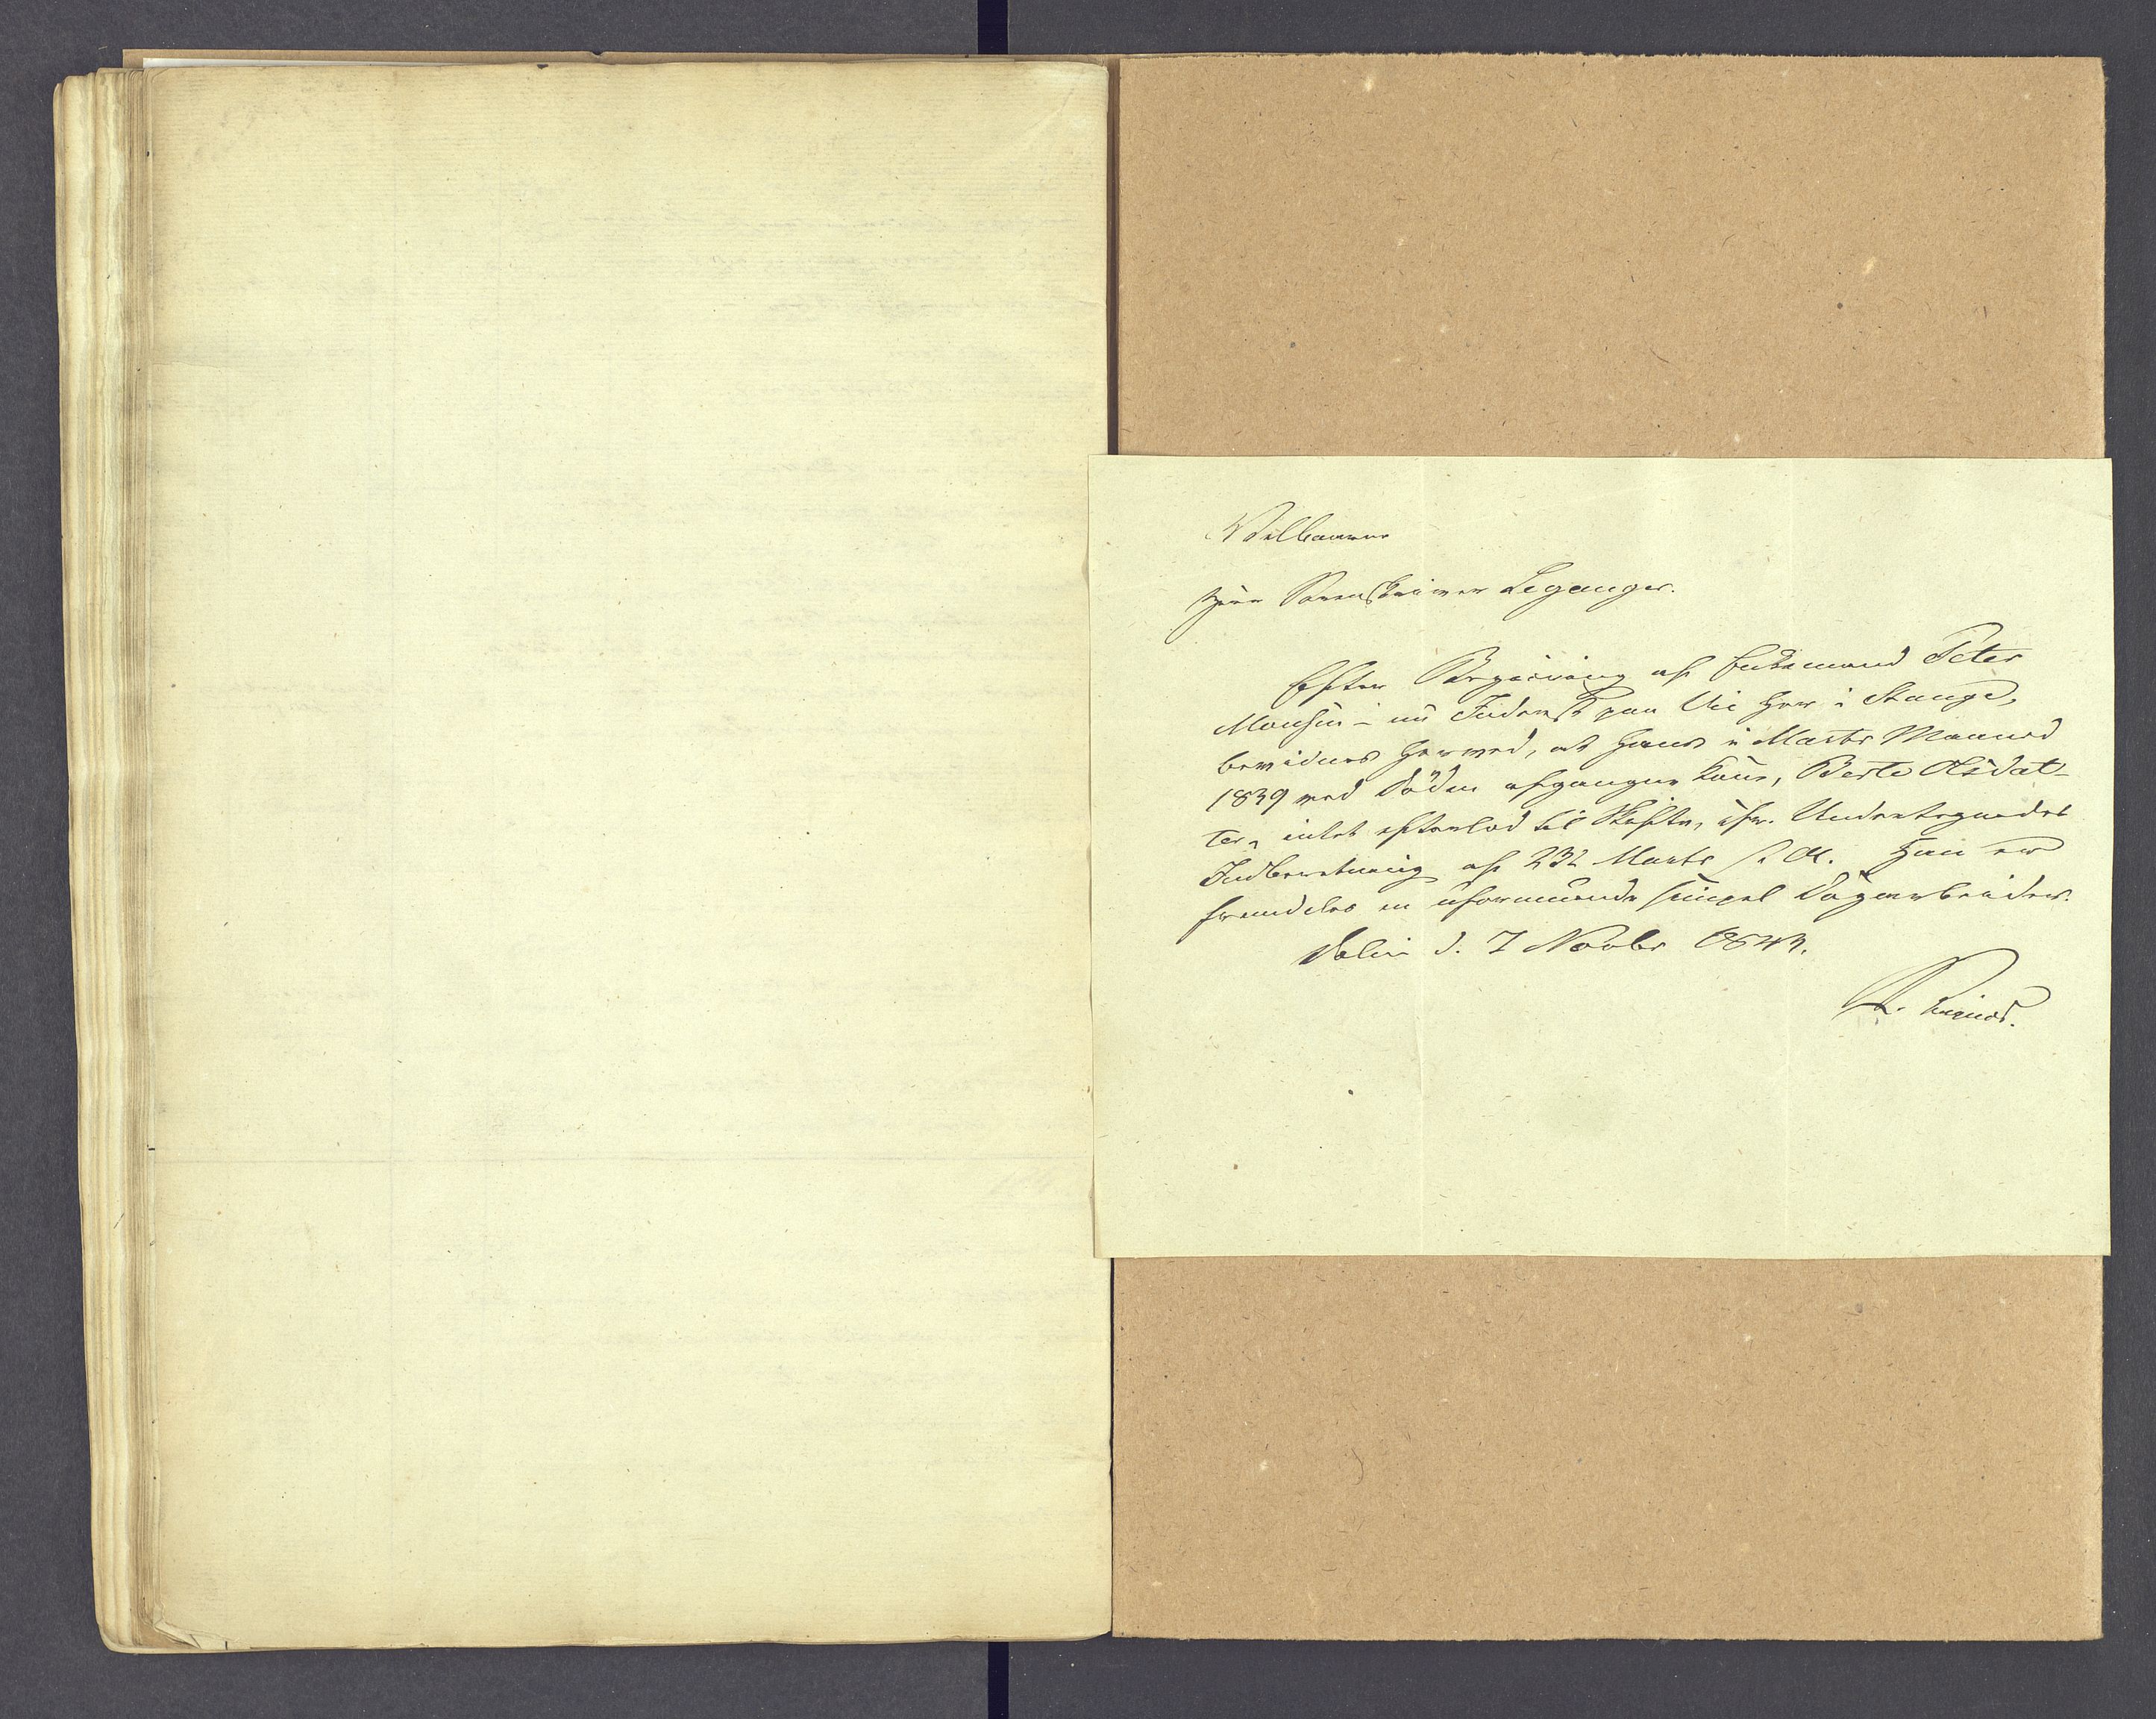 Velbaarne
Herr Sorenskriver Leganger.
Efter Begjæring af Enkemand Peter
Monsen – nu Inderst paa Vic her i Stange,
bevidnes herved, at hans i Marts Maaned
1839 ved Döden afgangne Kone, Berte Olsdat-
ter, intet efterlod til Skifte, cfr. Undertegnedes
Indberetning af 23de Marts s. A. Han er
fremdeles en uformuende simpel Dagarbeider.
d. 7 Novbr